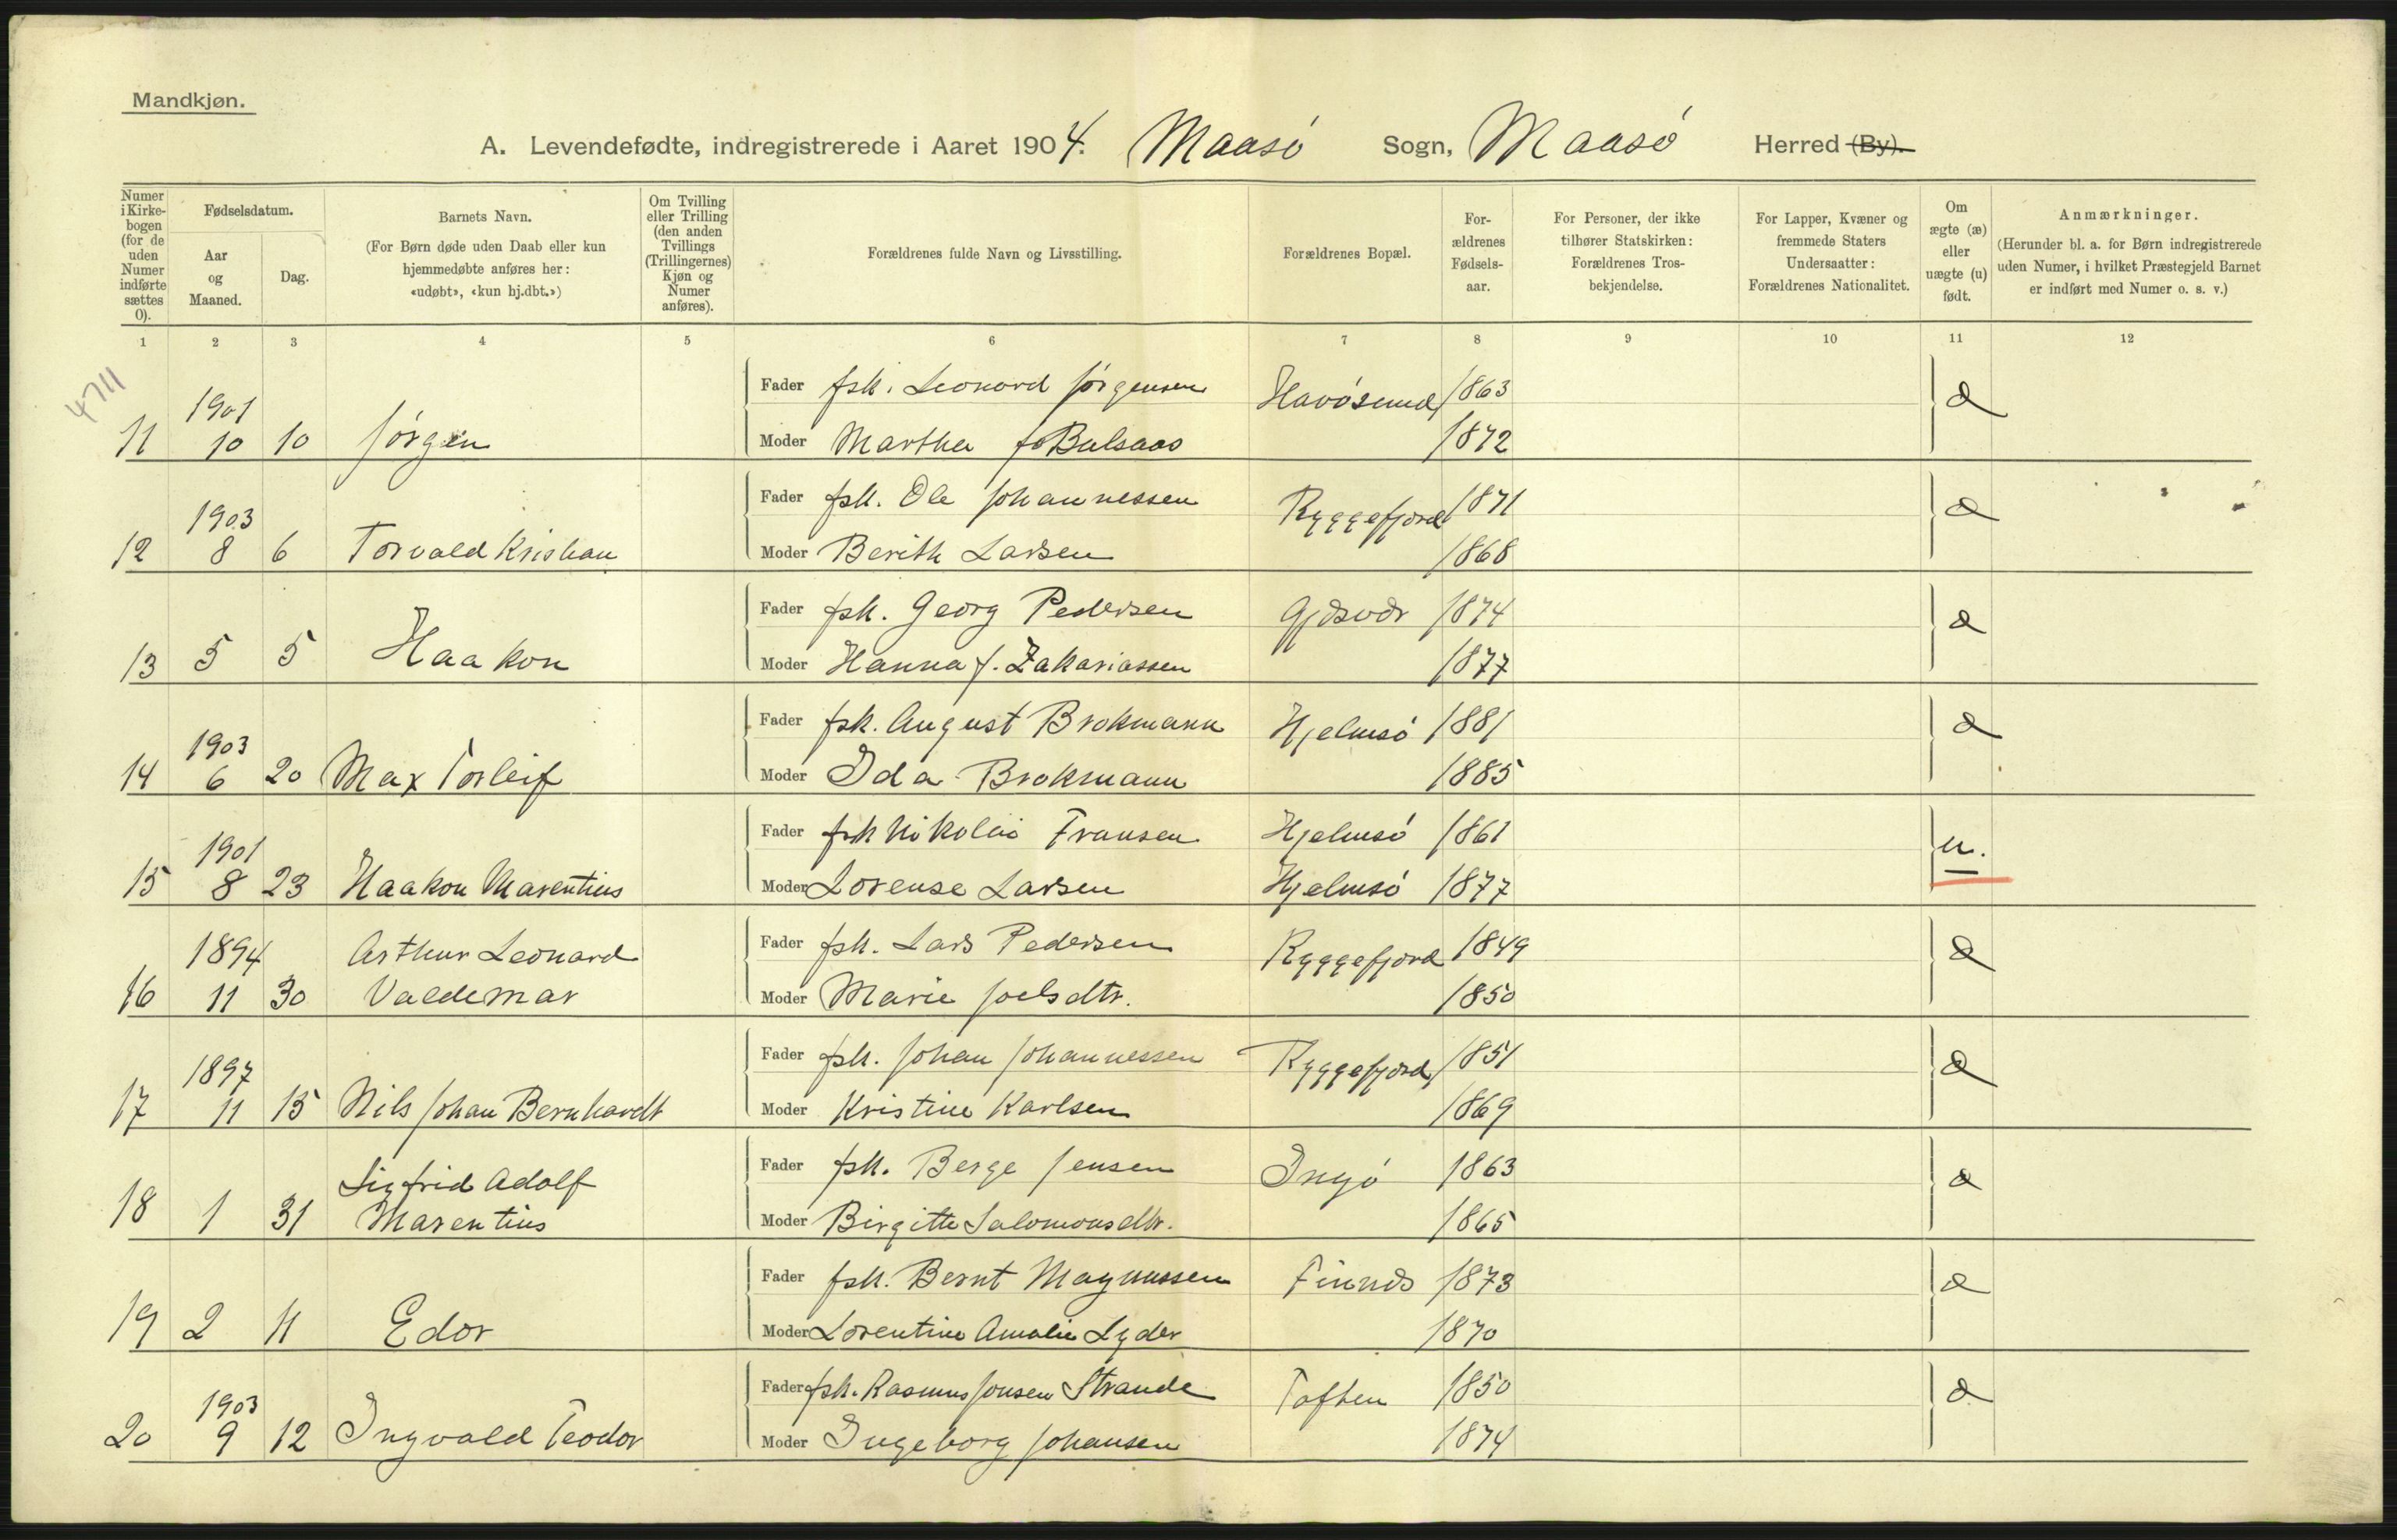 Mandkjøn.
A. Levendefødte, indregistrerede i Aaret 1904. Maasö Sogn, Maasö Herred (By).
Numer i Kirke-bogen (for de uden Numer indførte sættes 0).
Fødselsdatum.
Aar og Maaned.
Dag.
Barnets Navn.
(For Børn døde uden Daab eller kun hjemmedøbte anføres her: «udøbt», «kun hj.dbt.»)
Om Tvilling eller Trilling (den anden Tvillings (Trillingernes) Kjøn og Numer anføres).
Forældrenes fulde Navn og Livsstilling.
Forældrenes Bopæl.
For-ældrenes Fødsels-aar.
For Personer, der ikke tilhører Statskirken: Forældrenes Tros-bekjendelse.
For Lapper, Kvæner og fremmede Staters Undersaatter: Forældrenes Nationalitet.
Om ægte (æ) eller uægte (u) født.
Anmærkninger.
(Herunder bl. a. for Børn indregistrerede uden Numer, i hvilket Præstegjeld Barnet er indført med Numer o. s. v.)
1 2 3 4 5 6 7 8 9 10 11 12
4711
Fader fsk. Leonard Jørgensen Havösund 1863 æ
11 1901 10 10 Jørgen Moder Martha 1872
Fader fsk. Ole Johannessen Ryggefjord 1871 æ
12 1903 8 6 Torvald Kristian Moder Berith Larsen 1868
Fader fsk. Georg Pedersen Gjæsvær 1874 æ
13 5 5 Haakon Moder Hanna f. Zakariassen 1877
Fader fsk. August Brokmann Hjelmsö 1881 æ
14 1903 6 20 Max Torleif Moder Ida Brokmann 1885
Fader fsk Nikolai Fransen Hjelmsö 1861 u.
15 1901 8 23 Haakon Marentius Moder Lorense Larsen Hjelmsö 1877
Fader fsk. Lars Pedersen Ryggefjord 1849 æ
16 1894 11 30 Arthur Leonard Valdemar Moder Marie Joelsdtr. 1850
Fader fsk. Johan Johannessen Ryggefjord 1851 æ
17 1897 11 15 Nils Johan Bernhardt Moder Kristine Karlsen 1869
Fader fsk. Berge Jensen Ingö 1863 æ
18 1 31 Sigfrid Adolf Marentius Moder Birgitte Salomonsdtr. 1865
Fader fsk. Bernt Magnussen Finnæs 1873 æ
19 2 11 Edor Moder Lorentine Amalie Lyder 1870
Fader fsk. Rasmus Jonsen Strande Toften 1850 æ
20 1903 9 12 Ingvald Teodor Moder Ingeborg Johansen 1874